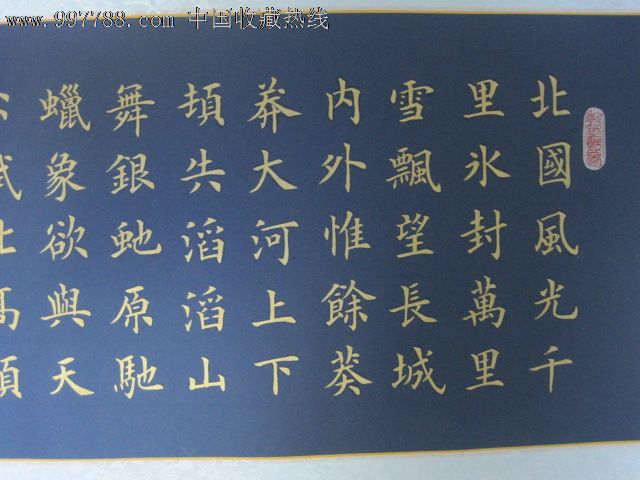 www.997788.com 中国收藏热线
北國風光千
里氷封萬里
雪飄望長城
内外惟餘莽
莽大河上下
頓失滔滔山
舞銀虵原馳
蠟象欲與天